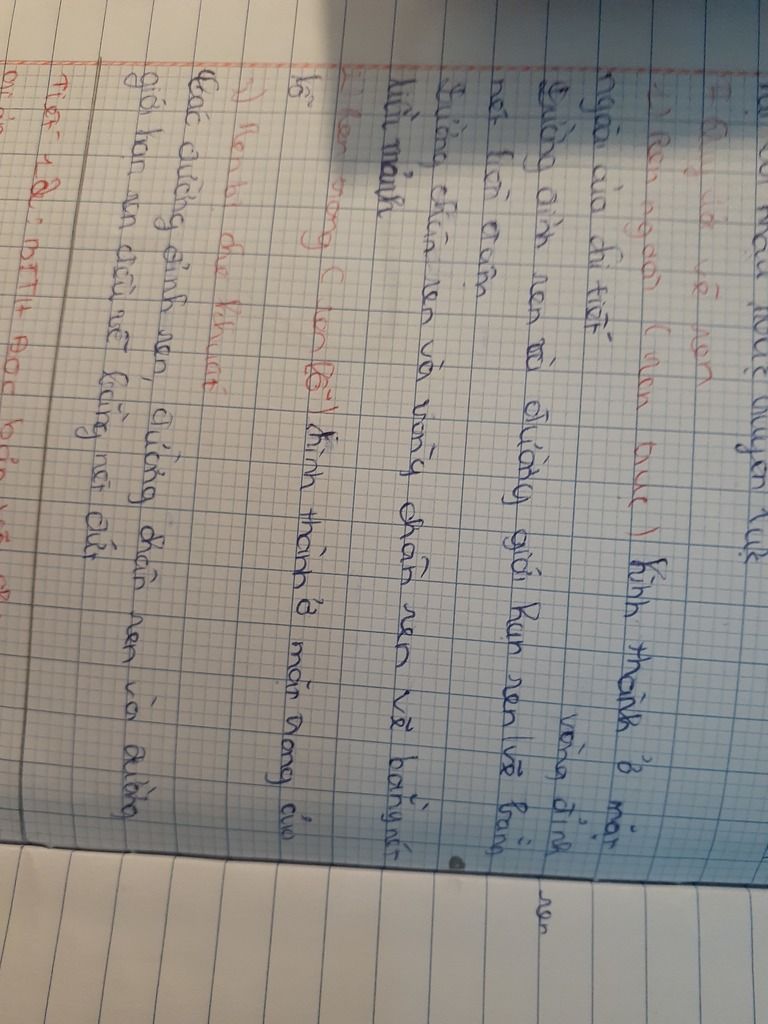 mặt phẳng chuyên
II Quy ước vẽ ren
1) Ren ngoài (ren trục) hình thành ở mặt
ngoài của chi tiết
vòng đỉnh ren
Đường đỉnh ren và đường giới hạn ren vẽ bằng
nét liền đậm
Đường chân ren và vòng chân ren vẽ bằng nét
liền mảnh
2) Ren trong (ren lỗ) hình thành ở mặt trong của
lỗ
3) Ren bị che khuất
Các đường đỉnh ren, đường chân ren và đường
giới hạn ren đều vẽ bằng nét đứt
Tiết 12: BTTH Đọc bản vẽ